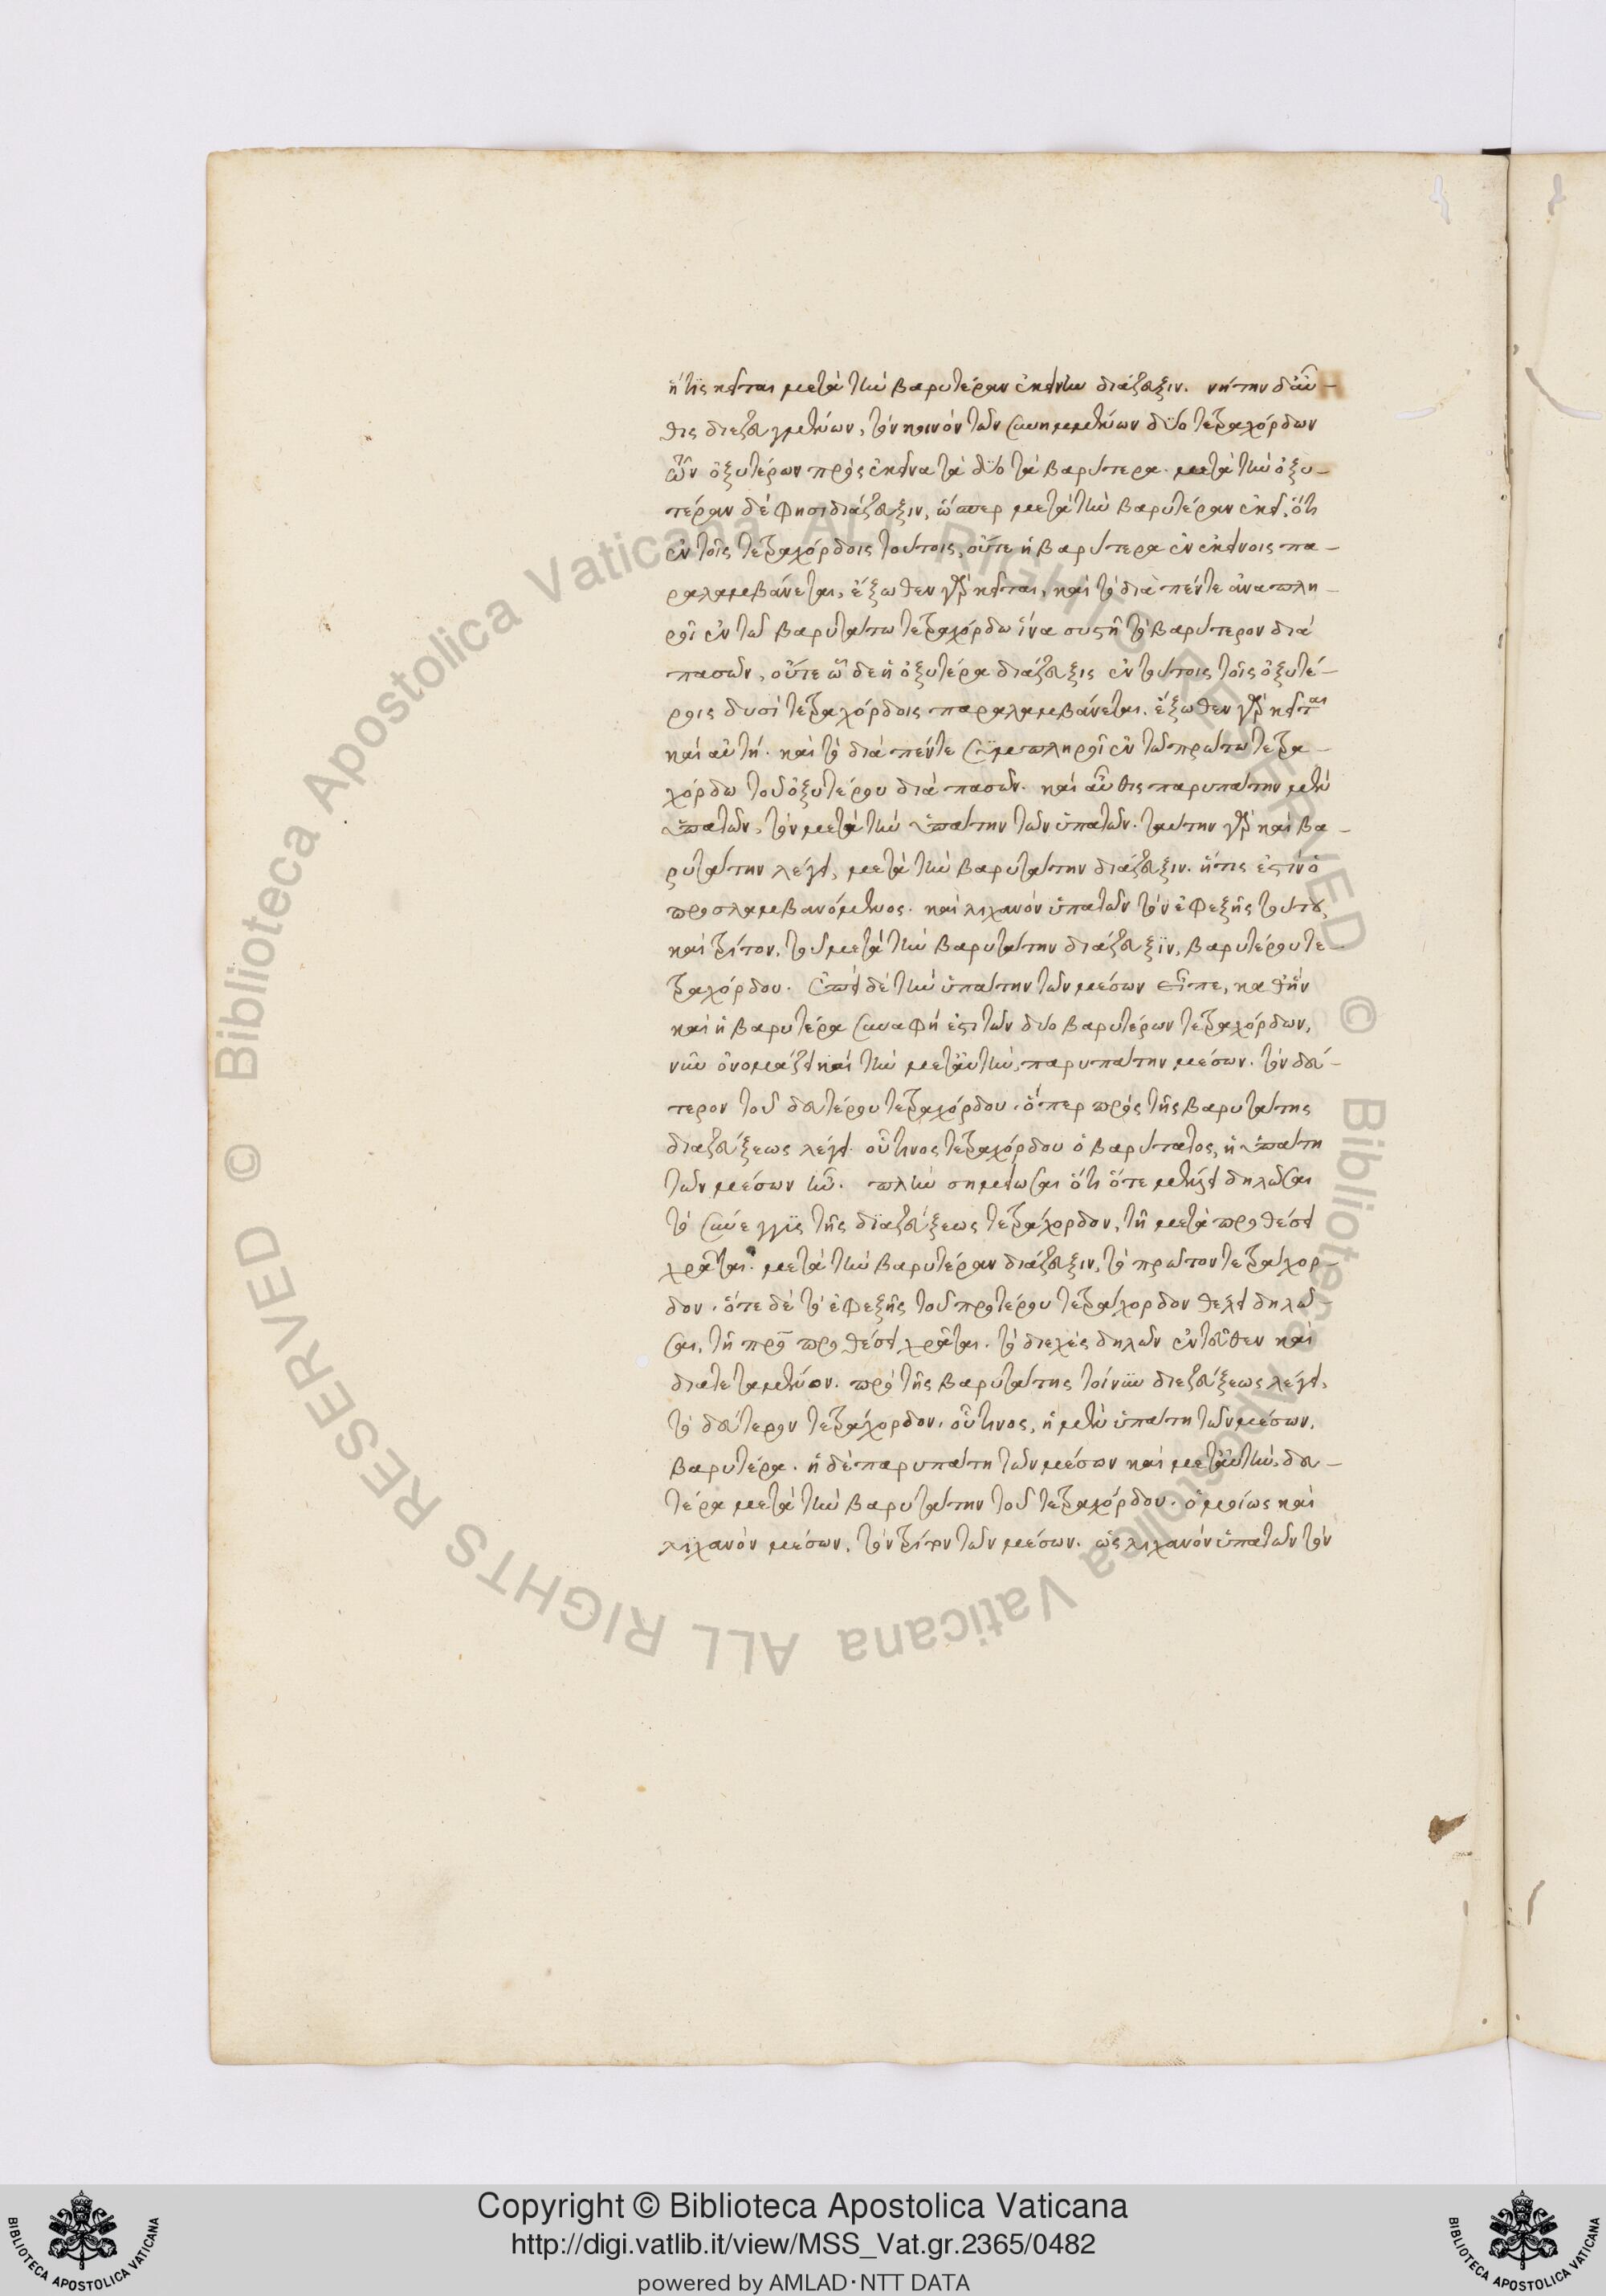 ἥτις κεῖται μετὰ τὴν βαρυτέραν ἐκείνην διάζευξιν. νήτην δ' αὖ-
θις διεζευγμένων, τὸν κοινὸν τῶν συνημμένων δύο τετραχόρδων
τῶν ὀξυτέρων πρὸς ἐκεῖνα τὰ δύο τὰ βαρύτερα. μετὰ τὴν ὀξυ-
τέραν δέ φησι διάζευξιν, ὥσπερ μετὰ τὴν βαρυτέραν ἐκεῖ, ὅτι
ἐν τοῖς τετραχόρδοις τούτοις, οὔτε ἡ βαρυτέρα ἐν ἐκείνοις πα-
ραλαμβάνεται, ἔξωθεν γὰρ κεῖται, καὶ τὸ διὰ πέντε ἀναπλη-
ροῖ ἐν τῶ βαρυτάτω τετραχόρδω ἵνα συστῆ τὸ βαρύτερον διὰ
πασῶν, οὔτε ὧδε ἡ ὀξυτέρα διάζευξις ἐν τούτοις τοῖς ὀξυτέ-
ροις δυσὶ τετραχόρδοις παραλαμβάνεται. ἔξωθεν γὰρ κεῖται
καὶ αὐτή. καὶ τὸ διὰ πέντε συμπληροῖ ἐν τῶ πρώτω τετρα-
χόρδω τοῦ ὀξυτέρου διὰ πασῶν. καὶ αὖθις παρυπάτην μὲν
ὑπάτων, τὸν μετὰ τὴν ὑπάτην τῶν ὑπάτων. ταύτην γὰρ καὶ βα-
ρυτάτην λέγει, μετὰ τὴν βαρυτάτην διάζευξιν. ἥτις ἐστὶν ὁ
προσλαμβανόμενος. καὶ λιχανὸν ὑπάτων τὸν ἐφεξῆς τούτου,
καὶ τρίτον, τοῦ μετὰ τὴν βαρυτάτην διάζευξιν, βαρυτέρου τε-
τραχόρδου. ἐπεὶ δὲ τὴν ὑπάτην τῶν μέσων εἶπε, καθ' ἣν
καὶ ἡ βαρυτέρα συναφή ἐστι τῶν δύο βαρυτέρων τετραχόρδων,
νῦν ὀνομάζει καὶ τὴν μετ' αὐτὴν, παρυπάτην μέσων. τὸν δεύ-
τερον τοῦ δευτέρου τετραχόρδου, ὅπερ πρὸς τῆς βαρυτάτης
διαζεύξεως λέγει. οὗτινος τετραχόρδου ὁ βαρύτατος, ἡ ὑπάτη
τῶν μέσων ἦν. πλὴν σημείωσαι ὅτι ὅτε μὲν ζητεῖ δηλῶσαι
τὸ σύνεγγυς τῆς διαζεύξεως τετράχορδον, τῆ μετὰ προθέσει
χρᾶται. μετὰ τὴν βαρυτέραν διάζευξιν, τὸ πρῶτον τετράχορ-
δον. ὅτε δὲ τὸ ἐφεξῆς τοῦ προτέρου τετράχορδον θέλει δηλῶ-
σαι, τῆ πρὸ προθέσει χρᾶται. τὸ διεχὲς δηλῶν ἐντεῦθεν καὶ
διατεταμένον. πρὸ τῆς βαρυτάτης τοίνυν διεζεύξεως λέγει,
τὸ δεύτερον τετράχορδον. οὗτινος, ἡ μὲν ὑπάτη τῶν μέσων,
βαρυτέρα. ἡ δὲ παρυπάτη τῶν μέσων καὶ μετ' αὐτὴν, δευ-
τέρα μετὰ τὴν βαρυτάτην τοῦ τετραχόρδου. ὁμοίως καὶ
λιχανὸν μέσων, τὸν τρίτον τῶν μέσων. ὡς λιχανὸν ὑπάτων τὸν
Copyright © Biblioteca Apostolica Vaticana
http://digi.vatlib.it/view/MSS_Vat.gr.2365/0482
powered by AMLAD·NTT DATA
BIBLIOTECA APOSTOLICA VATICANA
BIBLIOTECA APOSTOLICA VATICANA
© Biblioteca Apostolica Vaticana ALL RIGHTS RESERVED © Biblioteca Apostolica Vaticana ALL RIGHTS RESERVED